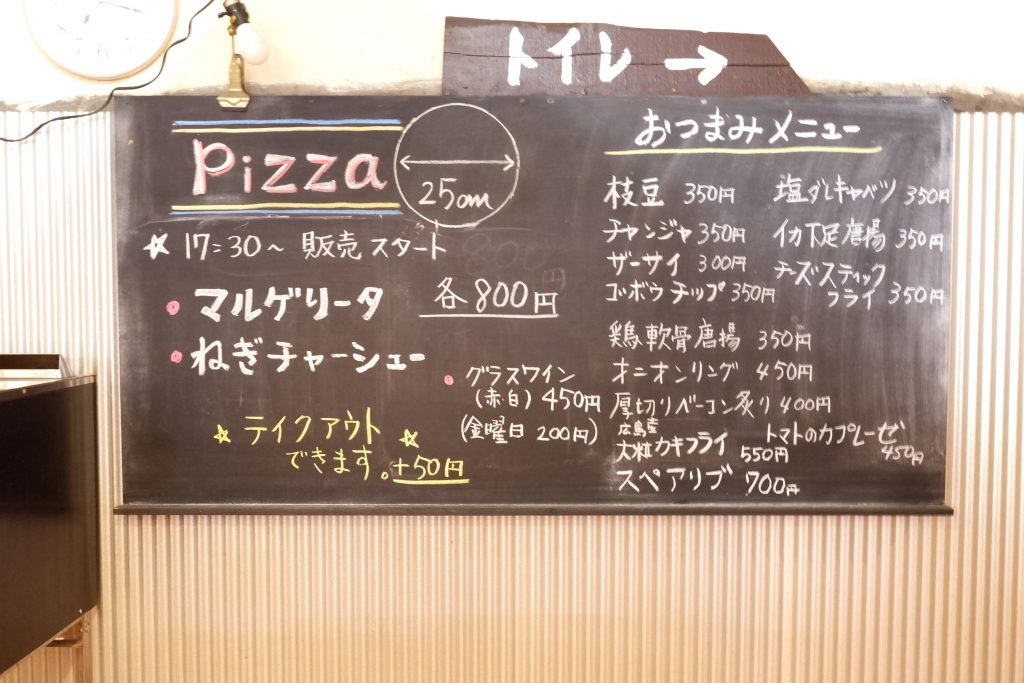 トイレ →
Pizza
25cm
☆ 17:30～ 販売 スタート
・マルゲリータ 各800円
・ねぎチャーシュー
・グラスワイン
(赤・白) 450円
(金曜日 200円)
☆ テイクアウト ☆
できます。+50円
おつまみメニュー
枝豆 350円
チャンジャ 350円
ザーサイ 300円
ゴボウチップ 350円
塩ダレキャベツ 350円
イカ下足唐揚 350円
チーズスティック
フライ 350円
鶏軟骨唐揚 350円
オニオンリング 450円
厚切りベーコン炙り 400円
広島産
大粒カキフライ 550円
トマトのカプレーゼ
450円
スペアリブ 700円